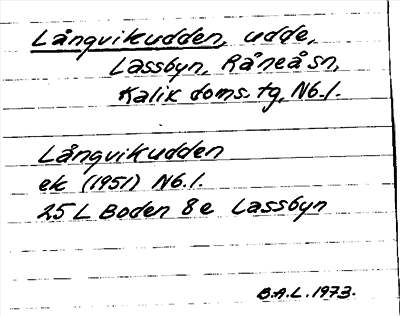 Långvikudden, udde,
Lassbyn, Råneå sn,
Kalix doms. tg, Nb.l.
Långvikudden
ek (1951) Nb.l.
25 L Boden 8e Lassbyn
B.A.L. 1973.